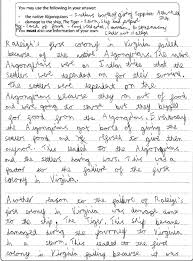 You may use the following in your answer:
• the native Algonquians
damage to the ship, The Tiger
You must also use information of your own.
Raleigh's first colony in Virginia failed
because of the native Algonquians. The native
Algonquians were Indians that the
settlers were dependent on for their survival.
The settlers were dependent on the
Algonquians because they ran out of food
and were going to starve but they begged
for food from the Algonquians. Eventually the
Algonquians got bored of giving the
settlers food and refused to give their
support. This leaded to the Algonquians
and the settlers having wars. This was a
factor to the failure of the first colony
in Virginia.
Another reason to the failure of Raleigh's
first colony in Virginia was damage done
to the ship, The Tiger. This ship became
damaged during the journey to Virginia
in a storm. This leaded to the first
colony in Virginia failing because it was